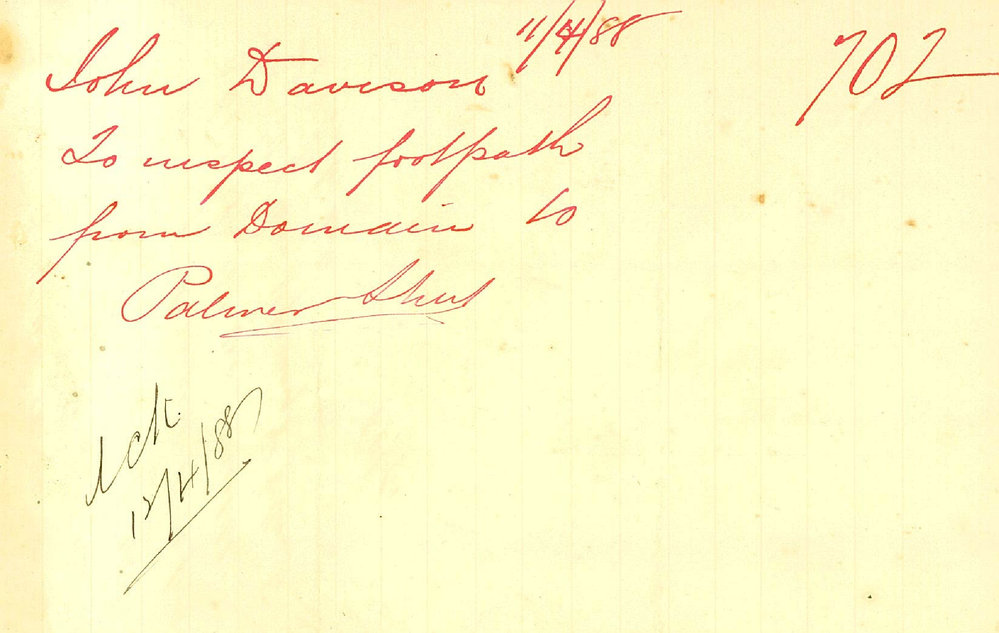 11/4/88
702
John Davison
To inspect footpath
from Domain to
Palmer Street
Ack.
12/4/88